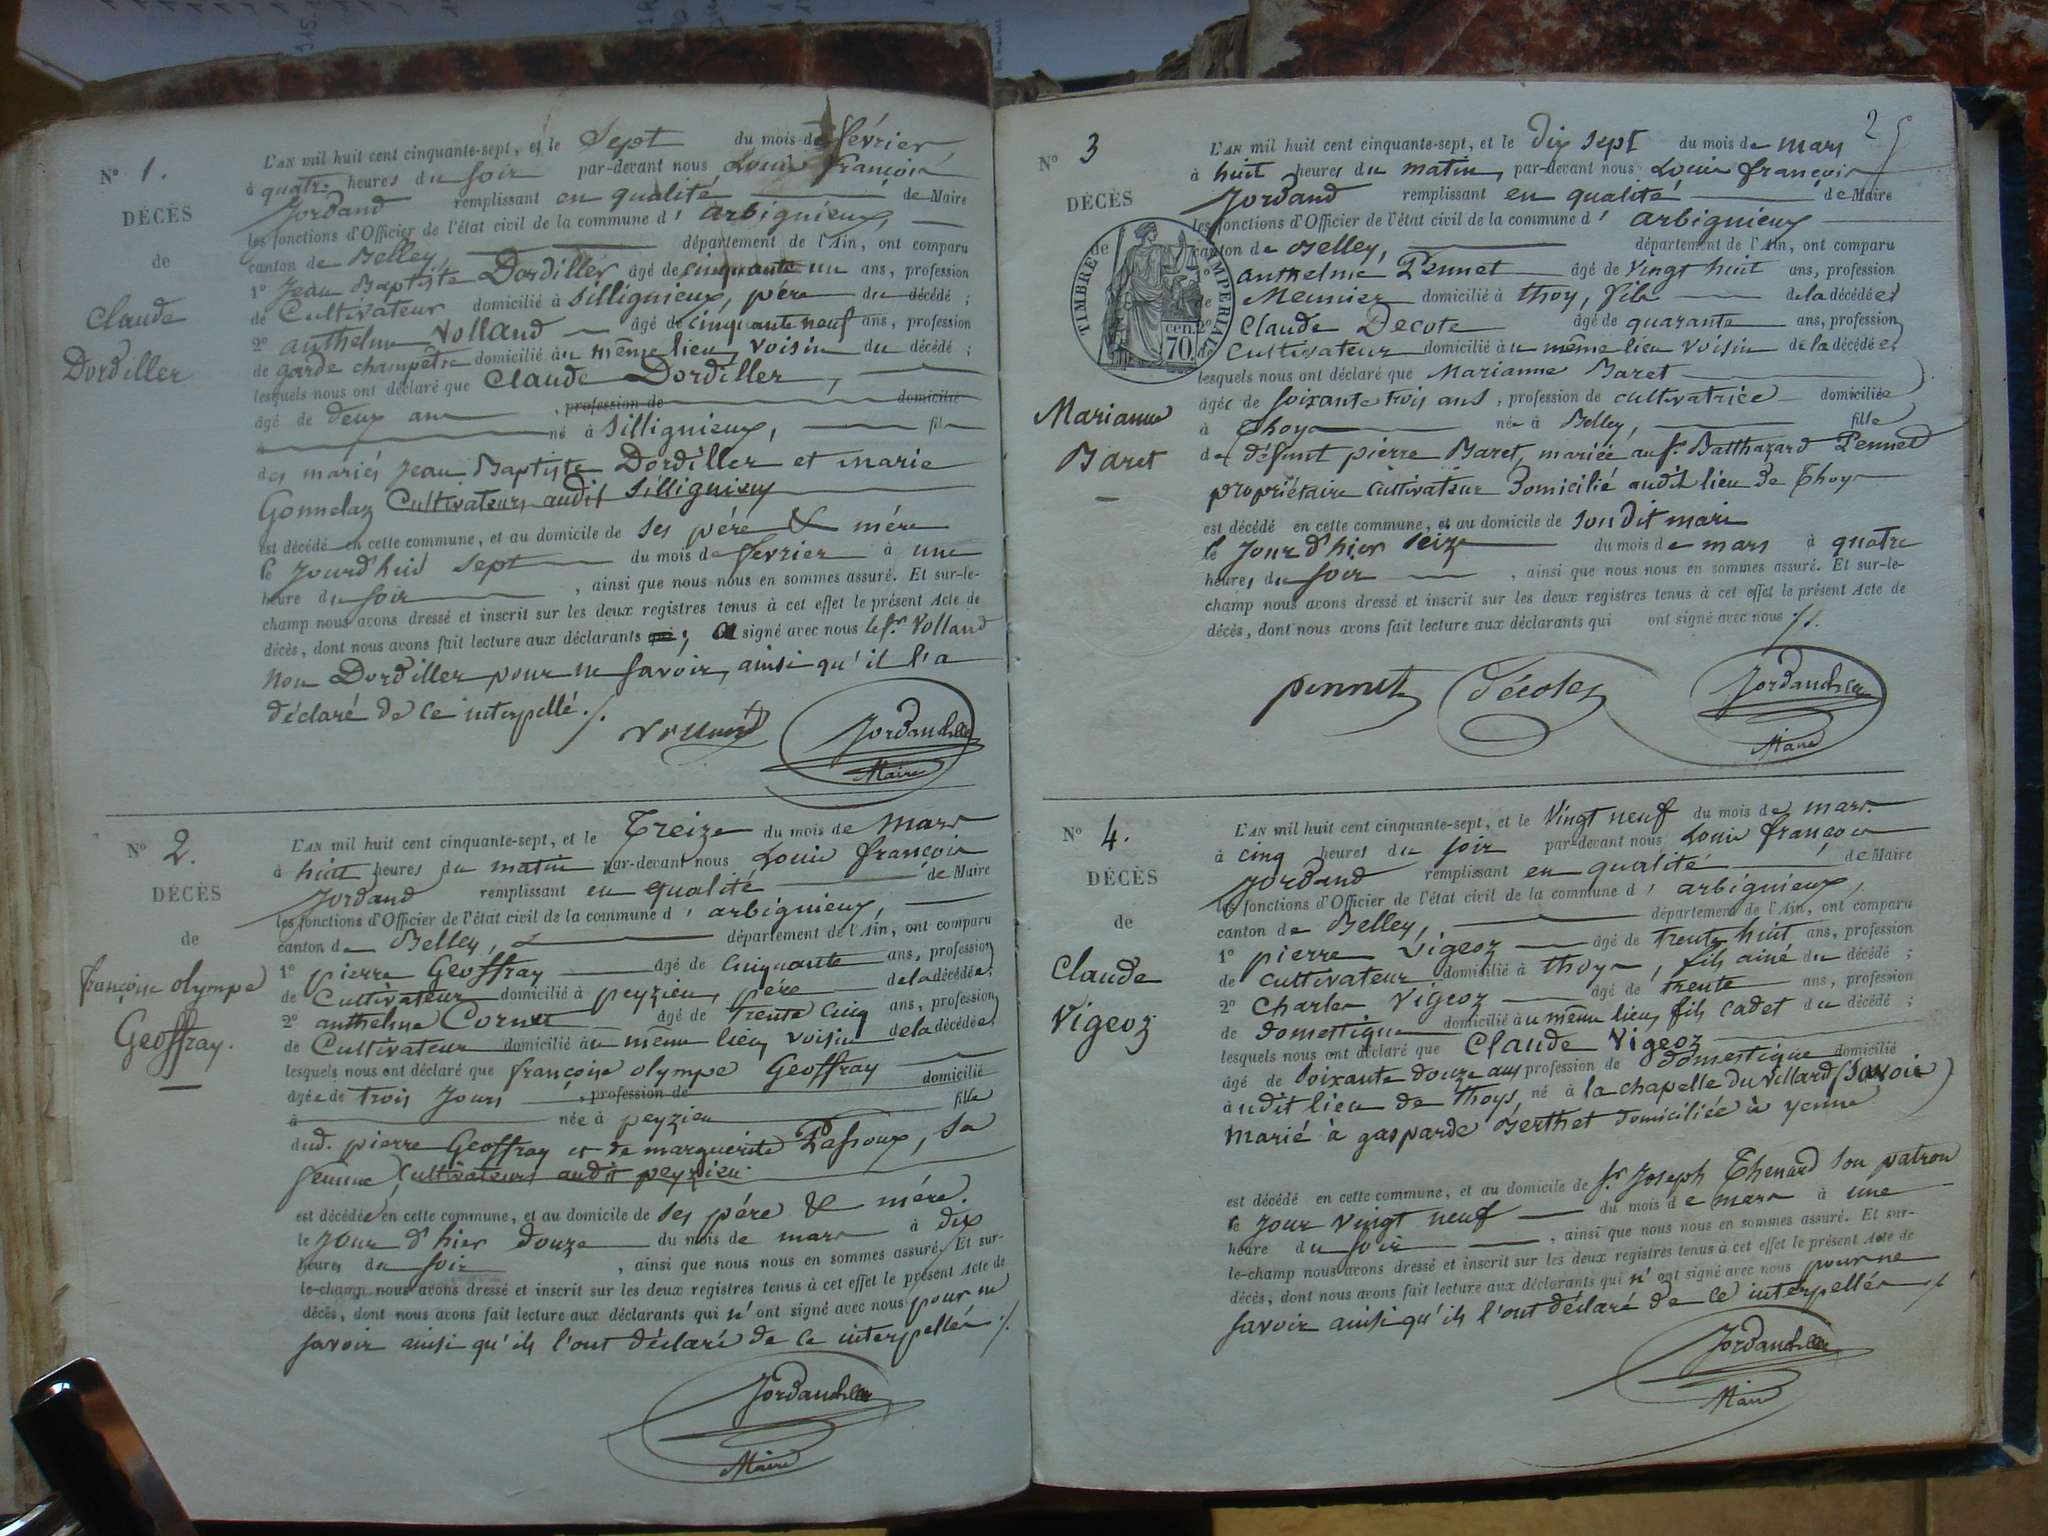 N° 1.
DÉCÈS
de
Claude
Dordiller
L'AN mil huit cent cinquante-sept, et le Sept du mois de février
à quatre heures du soir par-devant nous Louis françois
Jordand remplissant en qualité de Maire
les fonctions d'Officier de l'état civil de la commune d' arbignieux,
canton de Belley, département de l'Ain, ont comparu
1° Jean Baptiste Dordiller âgé de cinquante un ans, profession
de Cultivateur domicilié à Sillignieux, père du décédé ;
2° anthelme Volland âgé de cinquante neuf ans, profession
de garde champêtre domicilié au même lieu, voisin du décédé ;
lesquels nous ont déclaré que Claude Dordiller,
âgé de deux ans, profession de domicilié
à né à Sillignieux, fils
des mariés Jean Baptiste Dordiller et marie
Gonnelaz Cultivateurs audit Sillignieux
est décédé en cette commune, et au domicile de ses père & mère
le jourd'hui sept du mois de février à une
heure du soir, ainsi que nous nous en sommes assuré. Et sur-le-
champ nous avons dressé et inscrit sur les deux registres tenus à cet effet le présent Acte de
décès, dont nous avons fait lecture aux déclarants ; a signé avec nous le sr. Volland
non Dordiller pour ne savoir, ainsi qu'il l'a
déclaré de ce interpellé ./.
Volland Jordand
Maire
N° 2.
DÉCÈS
de
françoise olympe
Geoffray.
L'AN mil huit cent cinquante-sept, et le Treize du mois de mars
à huit heures du matin par-devant nous Louis françois
Jordand remplissant en qualité de Maire
les fonctions d'Officier de l'état civil de la commune d' arbignieux,
canton de Belley, département de l'Ain, ont comparu
1° pierre Geoffray âgé de cinquante ans, profession
de Cultivateur domicilié à peyzieu, père de la décédée ;
2° anthelme Cornu âgé de trente cinq ans, profession
de Cultivateur domicilié au même lieu, voisin de la décédée,
lesquels nous ont déclaré que françoise olympe Geoffray
âgée de trois jours, profession de domicilié
à née à peyzieu fille
dud. pierre Geoffray et de marguerite Passoux, sa
femme, Cultivateurs audit peyzieu
est décédée en cette commune, et au domicile de ses père & mère.
le jour d'hier douze du mois de mars à dix
heures du soir, ainsi que nous nous en sommes assuré. Et sur-
le-champ nous avons dressé et inscrit sur les deux registres tenus à cet effet le présent Acte de
décès, dont nous avons fait lecture aux déclarants qui n'ont signé avec nous pour ne
savoir ainsi qu'ils l'ont déclaré de ce interpellés ./.
Jordand
Maire
2
N° 3
DÉCÈS
de
Marianne
Baret
TIMBRE IMPERIAL
70 cen.
L'AN mil huit cent cinquante-sept, et le dix sept du mois de mars
à huit heures du matin, par-devant nous Louis françois
Jordand remplissant en qualité de Maire
les fonctions d'Officier de l'état civil de la commune d' arbignieux
canton de Belley, département de l'Ain, ont comparu
1° anthelme Pennet âgé de vingt huit ans, profession
de Meunier domicilié à thoy, fils de la décédée
2° Claude Decote âgé de quarante ans, profession
de Cultivateur domicilié au même lieu voisin de la décédée,
lesquels nous ont déclaré que Marianne Baret
âgée de soixante trois ans, profession de cultivatrice domiciliée
à Thoys née à Belley, fille
de défunt pierre Baret, mariée au sr. Balthazard Pennet
propriétaire cultivateur domicilié audit lieu de Thoys
est décédé en cette commune, et au domicile de son dit mari
le jour d'hier seize du mois de mars à quatre
heures du soir, ainsi que nous nous en sommes assuré. Et sur-le-
champ nous avons dressé et inscrit sur les deux registres tenus à cet effet le présent Acte de
décès, dont nous avons fait lecture aux déclarants qui ont signé avec nous ./.
pennet décote Jordand
Maire
N° 4.
DÉCÈS
de
Claude
Vigeoz
L'AN mil huit cent cinquante-sept, et le vingt neuf du mois de mars
à cinq heures du soir par-devant nous Louis françois
Jordand remplissant en qualité de Maire
les fonctions d'Officier de l'état civil de la commune d' arbignieux,
canton de Belley, département de l'Ain, ont comparu
1° pierre Vigeoz âgé de trente huit ans, profession
de cultivateur domicilié à thoys, fils ainé du décédé ;
2° Charles Vigeoz âgé de trente ans, profession
de domestique domicilié au même lieu, fils cadet du décédé ;
lesquels nous ont déclaré que Claude Vigeoz
âgé de soixante douze ans profession de domestique domicilié
audit lieu de thoys, né à la chapelle du villard (Savoie)
marié à gasparde Berthet domiciliée à yenne
est décédé en cette commune, et au domicile de sr. Joseph Thenard son patron
le jour vingt neuf du mois de mars à une
heure du soir, ainsi que nous nous en sommes assuré. Et sur-
le-champ nous avons dressé et inscrit sur les deux registres tenus à cet effet le présent Acte de
décès, dont nous avons fait lecture aux déclarants qui n'ont signé avec nous pour ne
savoir ainsi qu'ils l'ont déclaré de ce interpellés ./.
Jordand
Maire